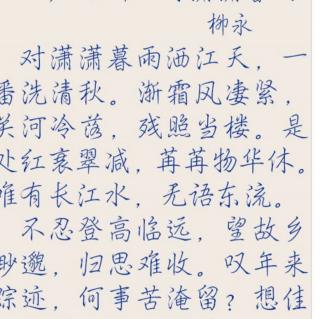 柳永
对潇潇暮雨洒江天，一
番洗清秋。渐霜风凄紧，
关河冷落，残照当楼。是
处红衰翠减，苒苒物华休。
唯有长江水，无语东流。
不忍登高临远，望故乡
渺邈，归思难收。叹年来
踪迹，何事苦淹留？想佳